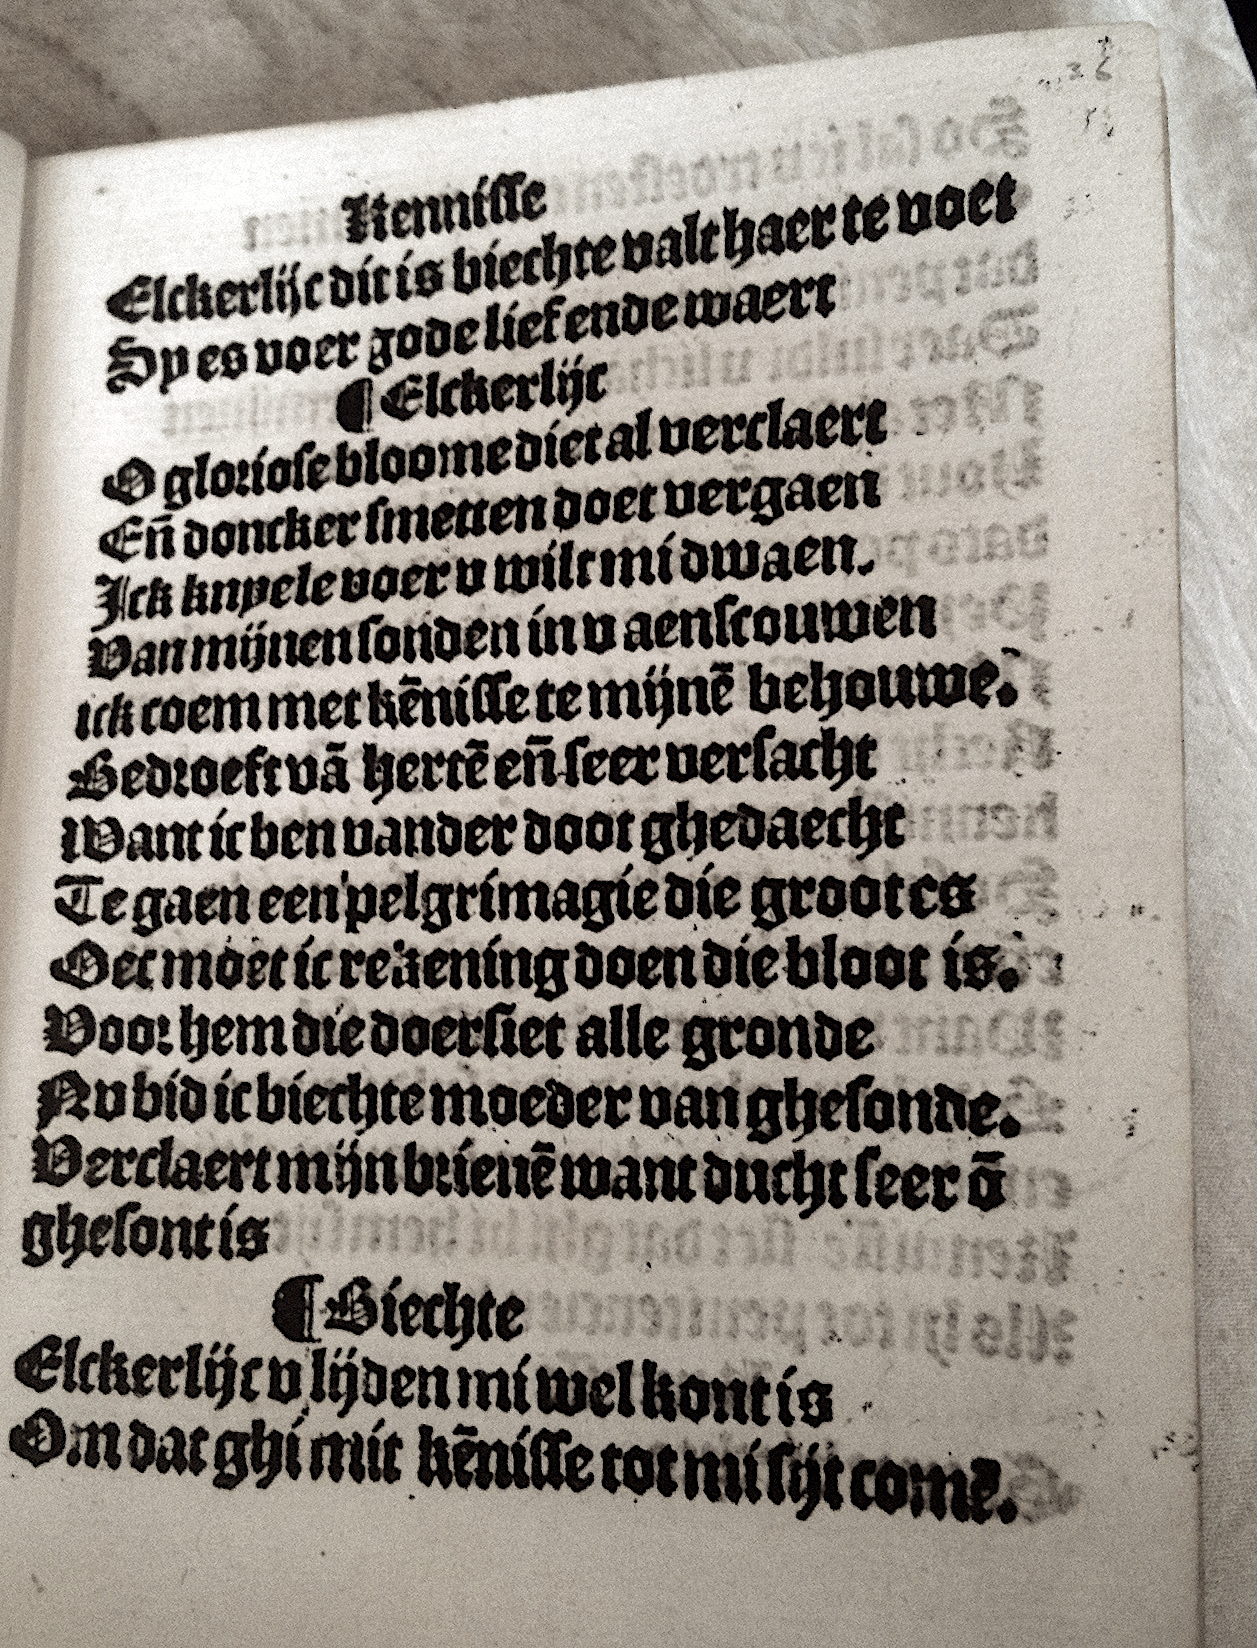 Kennisse
Elckerlijc dit is biechte valt haer te voet
Sy es voer gode lief ende waert
¶ Elckerlijc
O gloriose bloome diet al verclaert
Eñ doncker smetten doet vergaen
Ick knyele voer v wilt mi dwaen.
Van mijnen sonden in v aenscouwen
ick coem met kēnisse te mijnē behouwe.
Bedroeft vā hertē eñ seer versacht
Want ic ben vander doot ghedaecht
Te gaen een pelgrimagie die groot es
Oec moet ic rekening doen die bloot is.
Voor hem die doersiet alle gronde
Nv bid ic biechte moeder van ghesonde.
Verclaert mijn brieuē want ducht seer ō
ghesont is
¶ Biechte
Elckerlijc v lijden mi wel kont is
Om dat ghi mit kēnisse tot mi sijt comē.